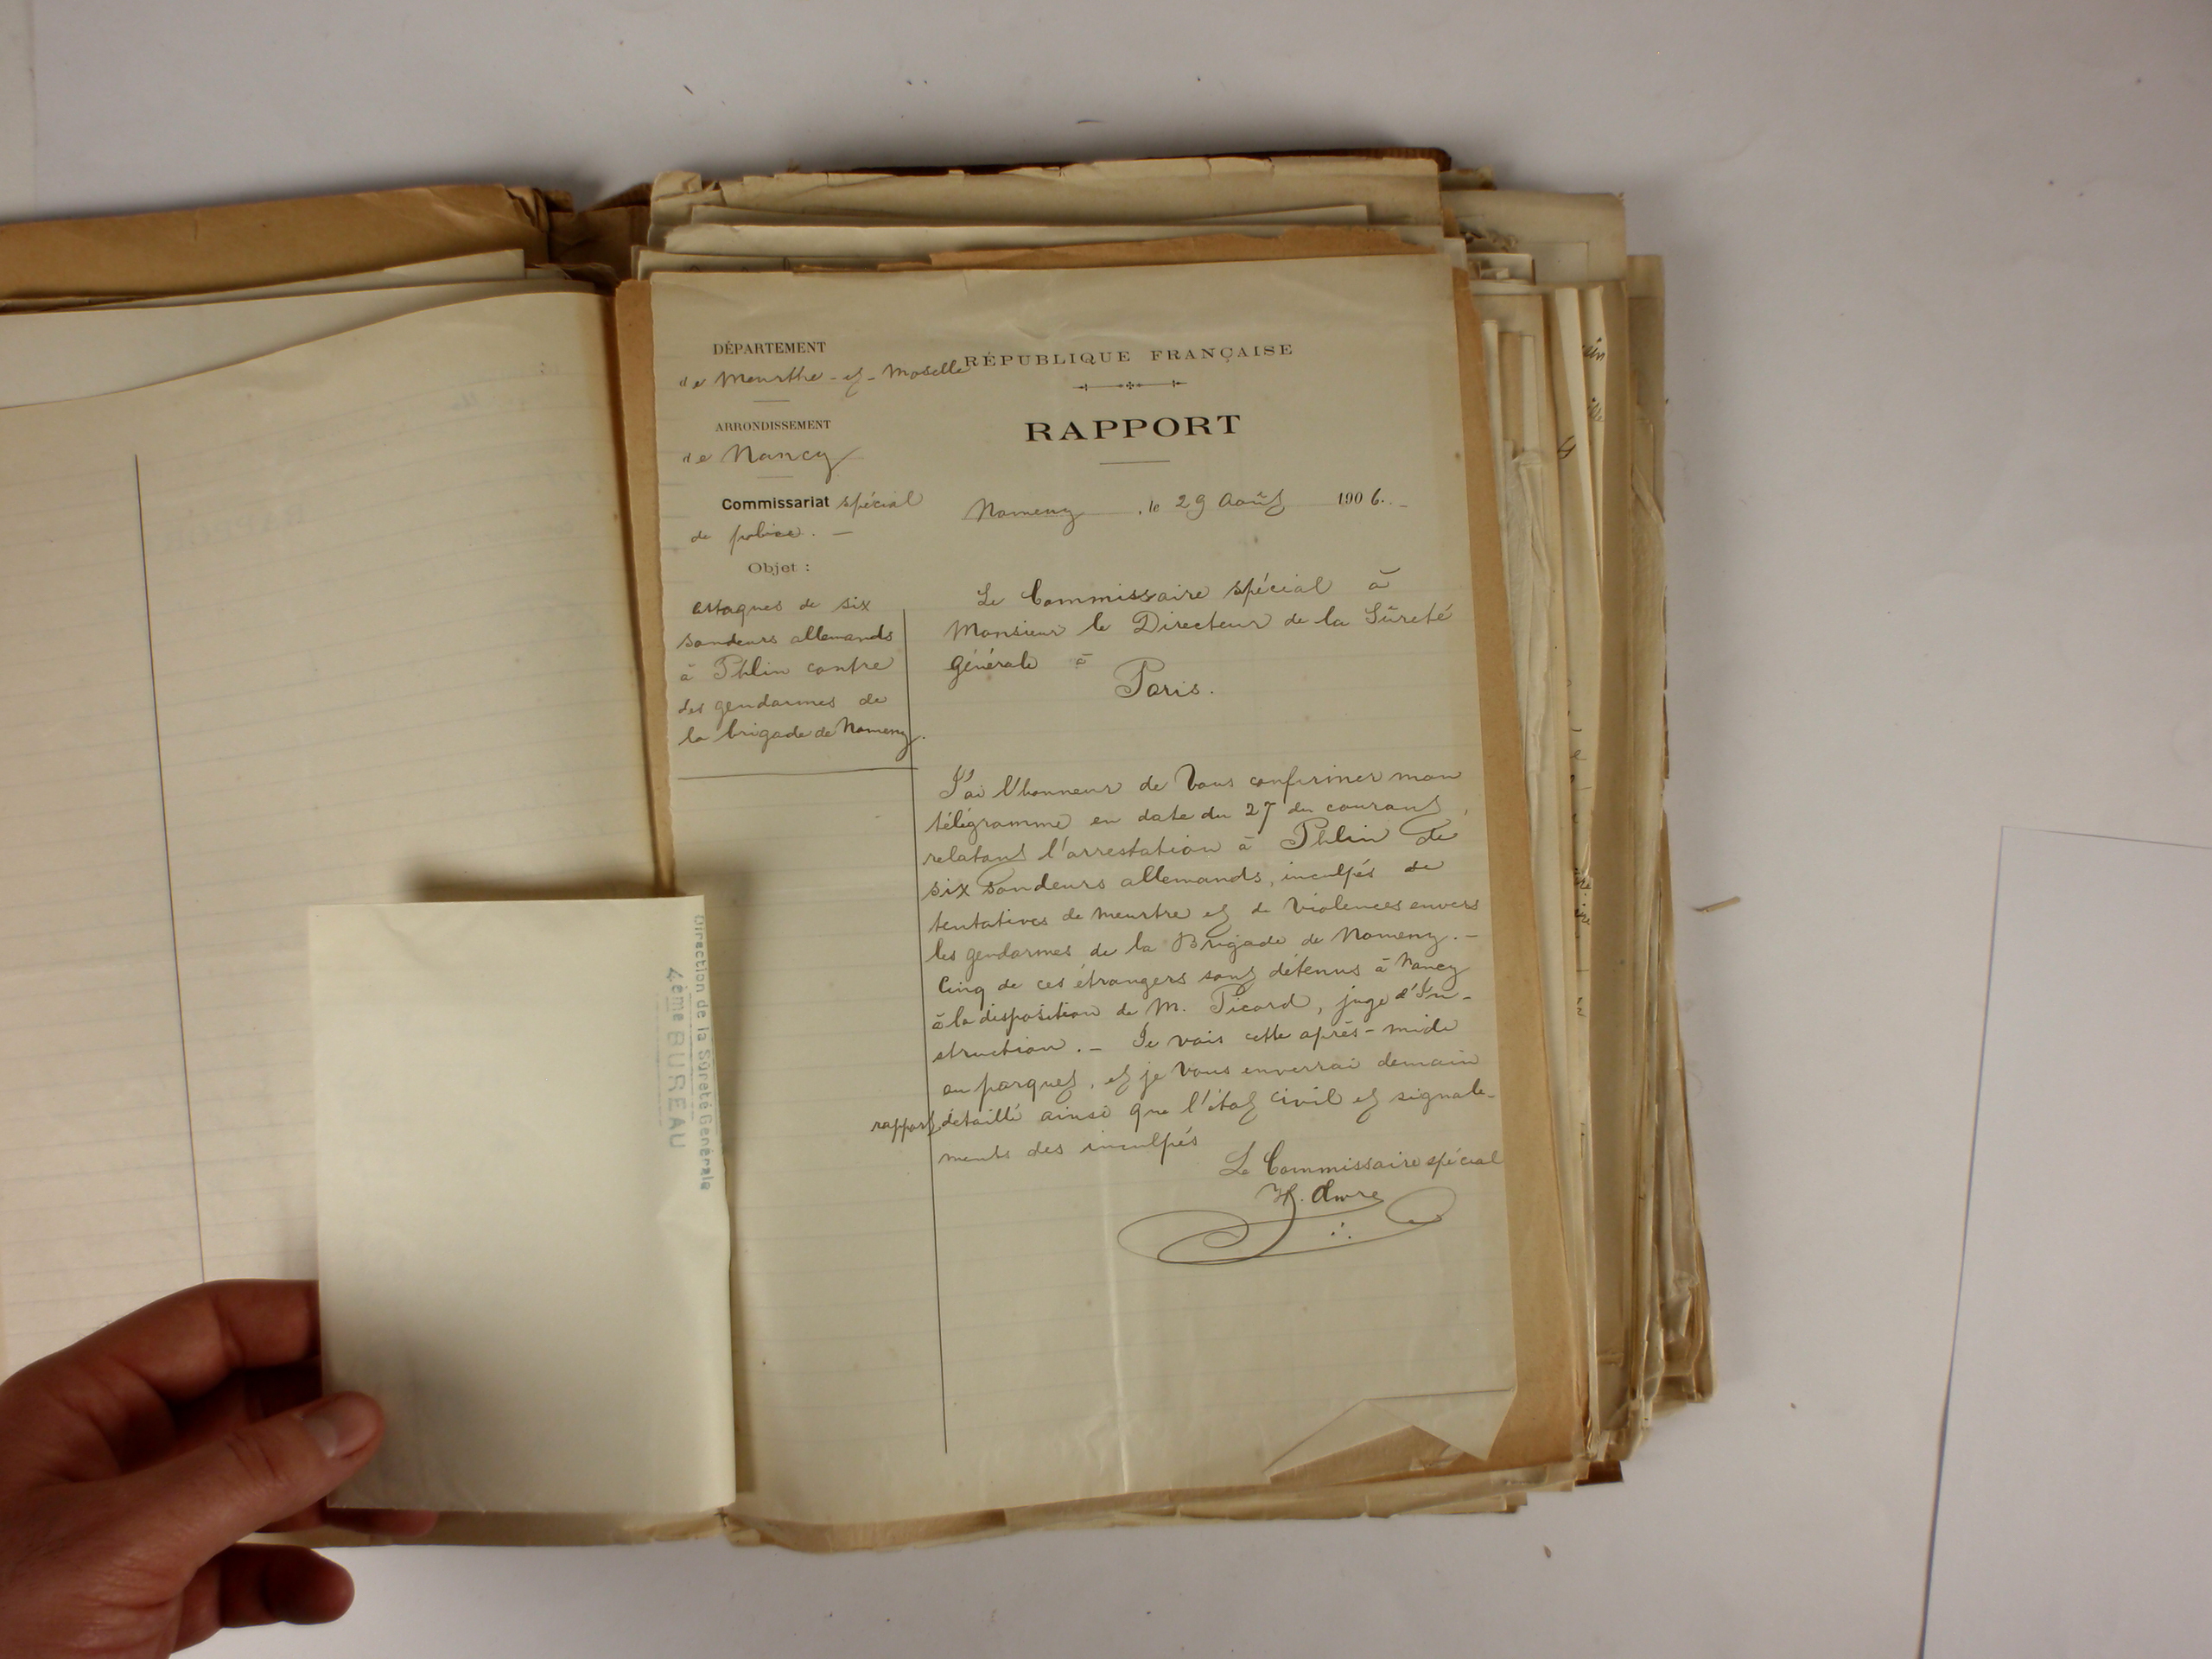 DÉPARTEMENT
de Meurthe-et-Moselle
ARRONDISSEMENT
de Nancy
Commissariat spécial
de police. —
Objet :
attaques de six
sondeurs allemands
à Phlin contre
des gendarmes de
la brigade de Nomeny.
RÉPUBLIQUE FRANÇAISE
RAPPORT
Nomeny, le 29 Août 1906. -
Le Commissaire spécial à
Monsieur le Directeur de la Sûreté
Générale à
Paris.
J'ai l'honneur de Vous confirmer mon
télégramme en date du 27 du courant,
relatant l'arrestation à Phlin de
six sondeurs allemands, inculpés de
tentatives de meurtre et de violences envers
les gendarmes de la Brigade de Nomeny. -
Cinq de ces étrangers sont détenus à Nancy
à la disposition de M. Picard, juge d'In-
struction. - Je vais cette après-midi
au parquet, et je Vous enverrai demain
rapport détaillé ainsi que l'état civil et signale-
ments des inculpés
Le Commissaire spécial
Direction de la Sûreté Générale
4ème BUREAU